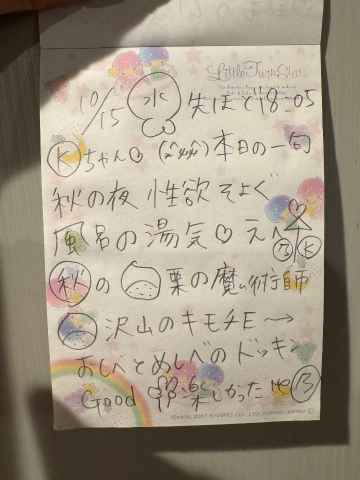 Little Twin Stars
10/15 水 先ほど18:05
Kちゃん♡ 本日の一句
秋の夜 性欲そよぐ
風呂の湯気♡ え
秋の 栗の魔術師
沢山のキモチE〜→
おしべとめしべのドッキン
Good 楽しかった
©1976, 2017 SANRIO CO., LTD. TOKYO, JAPAN